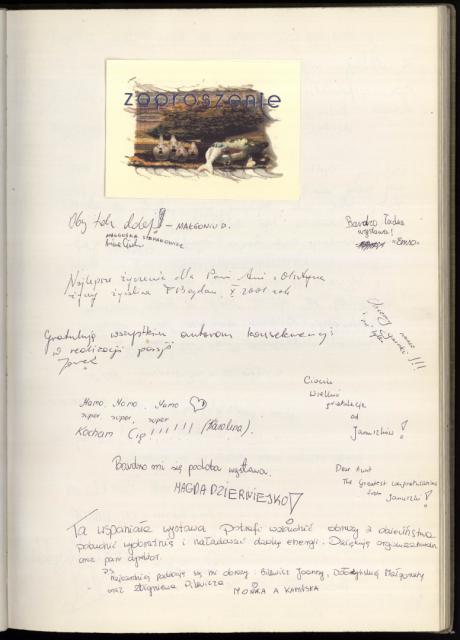 zaproszenie
Oby tak dalej! – MAŁGONIU D.
MAŁGOŚKA
Bardzo ładna
wystawa!
Najlepsze życzenia dla Pani Ani i
życzy Bogdan X 2001 rok
Gratuluję wszystkim autorom konsekwencji
w realizacji pasji
Mamo, Mamo, Mamo
super, super, super
Kocham Cię !!!!!! (Karolina).
Ciociu
Wielkie
gratulacje
od
Januszków!
Bardzo mi się podoba wystawa.
MAGDA DZIERNIEJKO!
Dear Aunt
The Greatest congratulations
from
Januszków!
Ta wspaniała wystawa potrafi wzbudzić obrazy z dzieciństwa
pobudzić wyobraźnię i naładować dawkę energii. Dziękuję organizatorom
oraz pani dyrektor.
PS
Najbardziej podobają się mi obrazy: Bilewicz Joanny, Małgorzaty
oraz Zbigniewa
MONIKA A KAMIŃSKA